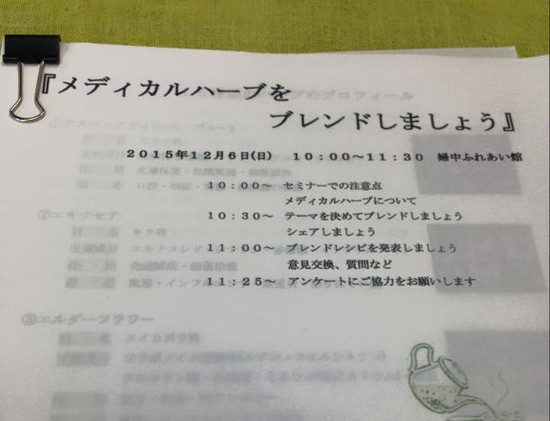 『メディカルハーブを
ブレンドしましょう』
2015年12月6日(日) 10:00~11:30 婦中ふれあい館
10:00~ セミナーでの注意点
メディカルハーブについて
10:30~ テーマを決めてブレンドしましょう
シェアしましょう
11:00~ ブレンドレシピを発表しましょう
意見交換、質問など
11:25~ アンケートにご協力をお願いします
のプロフィール
②エキナセア
キク科
③エルダーフラワー
スイカズラ科